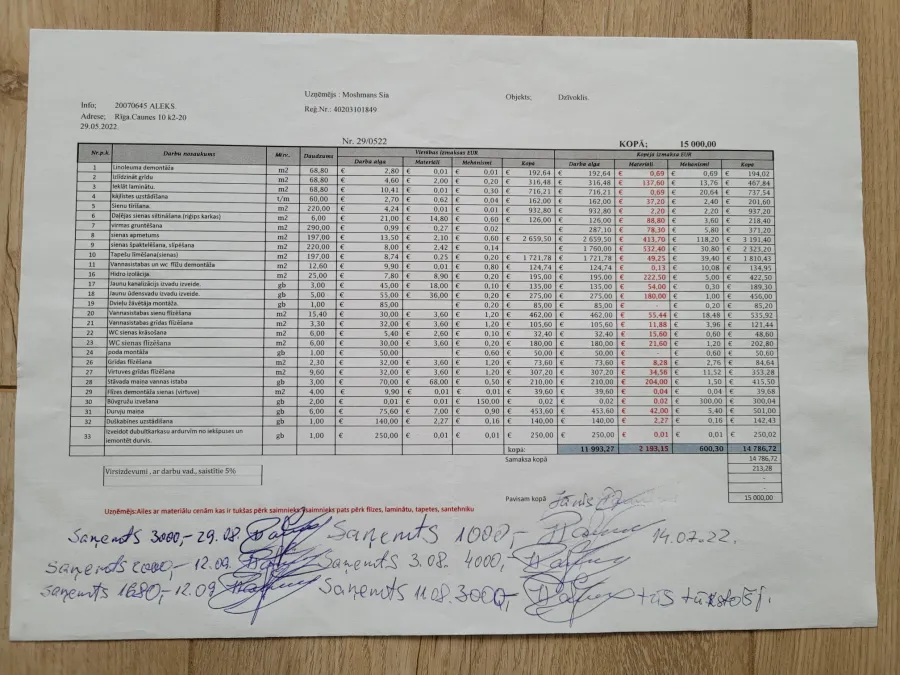 Uzņēmējs : Moshmans Sia
Objekts; Dzīvoklis.
Info; 20070645 ALEKS.
Reģ.Nr.: 40203101849
Adrese; Rīga.Caunes 10 k2-20
29.05.2022
Nr. 29/0522 KOPĀ; 15 000,00
Nr.p.k. Darbu nosaukums Mērv. Daudzums Vienības izmaksas EUR Kopējā izmaksa EUR
Darba alga Materiāli Mehanismi Kopa Darba alga Materiāli Mehanismi Kopa
1 Linoleuma demontāža m2 68,80 € 2,80 € 0,01 € 0,01 € 192,64 € 192,64 € 0,69 € 0,69 € 194,02
2 Izlīdzināt grīdu m2 68,80 € 4,60 € 2,00 € 0,20 € 316,48 € 316,48 € 137,60 € 13,76 € 467,84
3 Ieklāt laminātu. m2 68,80 € 10,41 € 0,01 € 0,30 € 716,21 € 716,21 € 0,69 € 20,64 € 737,54
4 kājlīstes uzstādīšana t/m 60,00 € 2,70 € 0,62 € 0,04 € 162,00 € 162,00 € 37,20 € 2,40 € 201,60
5 Sienu tīrīšana. m2 220,00 € 4,24 € 0,01 € 0,01 € 932,80 € 932,80 € 2,20 € 2,20 € 937,20
6 Daļējas sienas siltināšana (rīģips karkas) m2 6,00 € 21,00 € 14,80 € 0,60 € 126,00 € 126,00 € 88,80 € 3,60 € 218,40
7 virmas gruntēšana m2 290,00 € 0,99 € 0,27 € 0,02 € 287,10 € 78,30 € 5,80 € 371,20
8 sienas apmetums m2 197,00 € 13,50 € 2,10 € 0,60 € 2 659,50 € 2 659,50 € 413,70 € 118,20 € 3 191,40
9 sienas špaktelēšana, slīpēšana m2 220,00 € 8,00 € 2,42 € 0,14 € 1 760,00 € 532,40 € 30,80 € 2 323,20
10 Tapešu līmēšana(sienas) m2 197,00 € 8,74 € 0,25 € 0,20 € 1 721,78 € 1 721,78 € 49,25 € 39,40 € 1 810,43
11 Vannasistabas un wc flīžu demontāža m2 12,60 € 9,90 € 0,01 € 0,80 € 124,74 € 124,74 € 0,13 € 10,08 € 134,95
16 Hidro izolācija. m2 25,00 € 7,80 € 8,90 € 0,20 € 195,00 € 195,00 € 222,50 € 5,00 € 422,50
17 Jaunu kanalizācijs izvadu izveide. gb 3,00 € 45,00 € 18,00 € 0,10 € 135,00 € 135,00 € 54,00 € 0,30 € 189,30
18 Jaunu ūdensvadu izvadu izveide. gb 5,00 € 55,00 € 36,00 € 0,20 € 275,00 € 275,00 € 180,00 € 1,00 € 456,00
19 Dvieļu žāvētāja montāža. gb 1,00 € 85,00 € 0,20 € 85,00 € 85,00 - € 0,20 € 85,20
20 Vannasistabas sienu flīzēšana m2 15,40 € 30,00 € 3,60 € 1,20 € 462,00 € 462,00 € 55,44 € 18,48 € 535,92
21 Vannasistabas grīdas flīzēšana m2 3,30 € 32,00 € 3,60 € 1,20 € 105,60 € 105,60 € 11,88 € 3,96 € 121,44
22 WC sienas krāsošana m2 6,00 € 5,40 € 2,60 € 0,10 € 32,40 € 32,40 € 15,60 € 0,60 € 48,60
23 WC sienas flīzēšana m2 6,00 € 30,00 € 3,60 € 0,20 € 180,00 € 180,00 € 21,60 € 1,20 € 202,80
24 poda montāža gb 1,00 € 50,00 € 0,60 € 50,00 € 50,00 € 0,60 € 50,60
26 Grīdas flīzēšana m2 2,30 € 32,00 € 3,60 € 1,20 € 73,60 € 73,60 € 8,28 € 2,76 € 84,64
27 Virtuves grīdas flīzēšana m2 9,60 € 32,00 € 3,60 € 1,20 € 307,20 € 307,20 € 34,56 € 11,52 € 353,28
28 Stāvada maiņa vannas istaba gb 3,00 € 70,00 € 68,00 € 0,50 € 210,00 € 210,00 € 204,00 € 1,50 € 415,50
29 Flīzes demontāža sienas (virtuve) m2 4,00 € 9,90 € 0,01 € 0,01 € 39,60 € 39,60 € 0,04 € 0,04 € 39,68
30 Būvgružu izvešana gb 2,00 € 0,01 € 0,01 € 150,00 € 0,02 € 0,02 € 0,02 € 300,00 € 300,04
31 Durvju maiņa gb 6,00 € 75,60 € 7,00 € 0,90 € 453,60 € 453,60 € 42,00 € 5,40 € 501,00
32 Duškabīnes uzstādīšana gb 1,00 € 140,00 € 2,27 € 0,16 € 140,00 € 140,00 € 2,27 € 0,16 € 142,43
33 Izveidot dubultkarkasu ardurvīm no iekšpuses un iemontēt durvis. gb 1,00 € 250,00 € 0,01 € 0,01 € 250,00 € 250,00 € 0,01 € 0,01 € 250,02
kopā: 11 993,27 2 193,15 600,30 14 786,72
Samaksa kopā 14 786,72
Virsizdevumi , ar darbu vad., saistītie 5% 213,28
-
-
Pavisam kopā 15 000,00
Uzņēmējs:Ailes ar materiālu cenām kas ir tukšas pērk saimnieks. saimnieks pats pērk flīzes, laminātu, tapetes, santehniku
Jānis
Saņemts 3000,- 29.08. Saņemts 1000,- 14.07.22.
Saņemts 2000,- 12.09. Saņemts 3.08. 4000,
Saņemts 1680,- 12.09 Saņemts 11.08. 3000,- trīs tūkstoši.